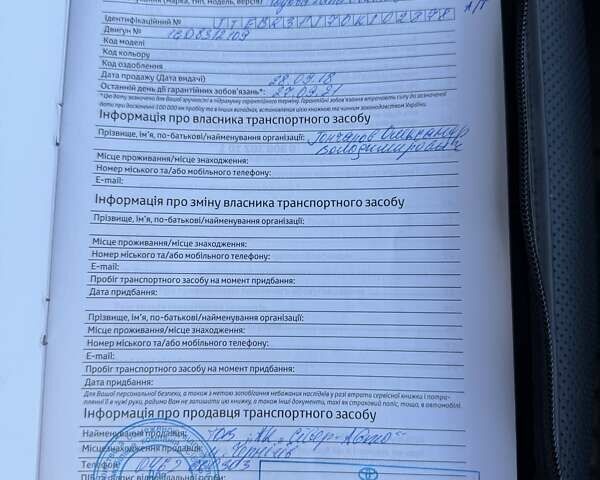 (марка, тип, модель, версія)
А/Т
Ідентифікаційний №
Двигун №
Код моделі
Код кольору
Код оздоблення
Дата продажу (Дата видачі) 28.09.18
Останній день дії гарантійних зобов'язань*: 27.09.21
*Цю дату зазначено для Вашої зручності в підрахунку гарантійного терміну. Гарантійні зобов'язання втрачають силу до зазначеної
дати при досягненні 100 000 км пробігу та в інших випадках, встановлених цією книжкою та чинним законодавством України.
Інформація про власника транспортного засобу
Прізвище, ім'я, по-батькові/найменування організації: Гончаров Олександр
Володимирович
Місце проживання/місце знаходження:
Номер міського та/або мобільного телефону:
E-mail:
Інформація про зміну власника транспортного засобу
Прізвище, ім'я, по-батькові/найменування організації:
Місце проживання/місце знаходження:
Номер міського та/або мобільного телефону:
E-mail:
Пробіг транспортного засобу на момент придбання:
Дата придбання:
Прізвище, ім'я, по-батькові/найменування організації:
Місце проживання/місце знаходження:
Номер міського та/або мобільного телефону:
E-mail:
Пробіг транспортного засобу на момент придбання:
Дата придбання:
Для Вашої персональної безпеки, а також з метою запобігання небажаних наслідків у разі втрати сервісної книжки і потра-
пляння її в чужі руки, радимо Вам не залишати цю книжку, а також інші документи, такі як страховий поліс, тощо, в автомобілі.
Інформація про продавця транспортного засобу
Найменування продавця: ТОВ „АК „Сівер-Авто"
Місцезнаходження продавця: м. Чернігів
Телефон: 0462